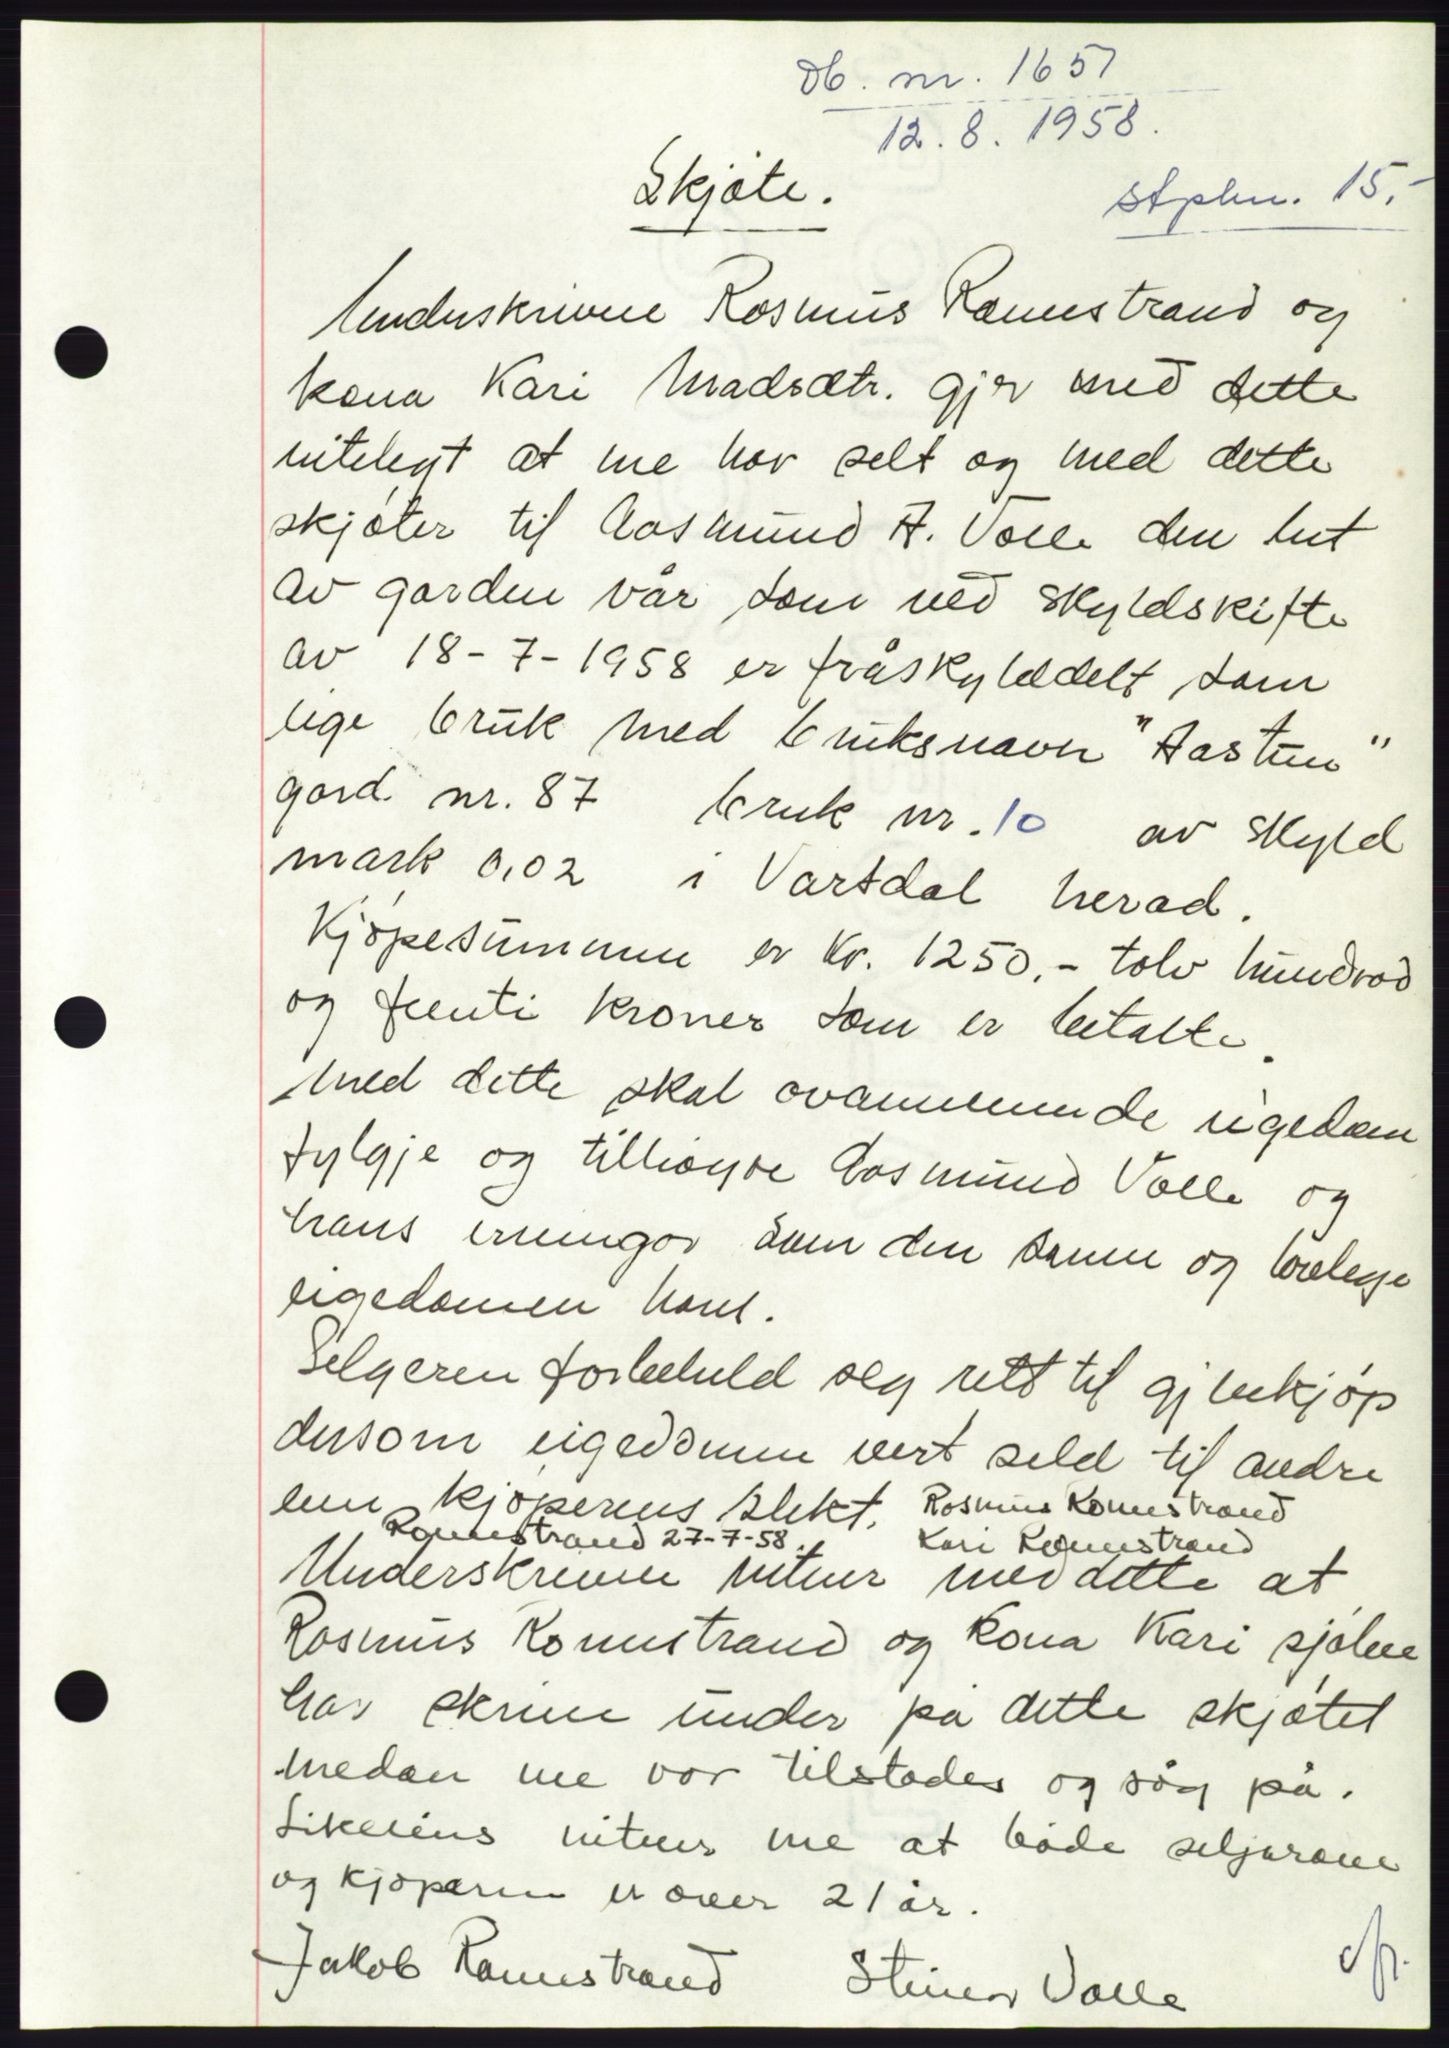 Db. nr. 1651
12.8.1958.
Skjøte.
stplm. 15,-
Underskrivne Rasmus Romestrand og
kona Kari Madsdtr. gjer med dette
vitelegt at me har selt og med dette
skjøter til Aasmund A. Valle den lut
av garden vår som ved skyldskifte
av 18-7-1958 er fråskylddelt som
eige bruk med bruksnavn "Aastun"
gard nr. 87 bruk nr. 10 av skyld
mark 0,02 i Vartdal herad.
Kjøpesummen er kr. 1250.- tolv hundrad
og femti kroner som er betalte.
Med dette skal ovannemnde eigedom
fylgje og tilhøyre Aasmund Valle og
hans ervingar som den sanne og lovlege
eigedomen hans.
Selgeren forbeheld seg rett til gjenkjøp
dersom eigedomen vert seld til andre
enn kjøperens slekt. Rasmus Romestrand
Romestrand 27-7-58. Kari Romestrand
Underskrivne vitner med dette at
Rasmus Romestrand og kona Kari sjølve
har skrive under på dette skjøtet
medan me var tilstades og såg på.
Likeeins vitner me at både seljarane
og kjøparen er over 21 år.
Jakob Romestrand Steinar Valle